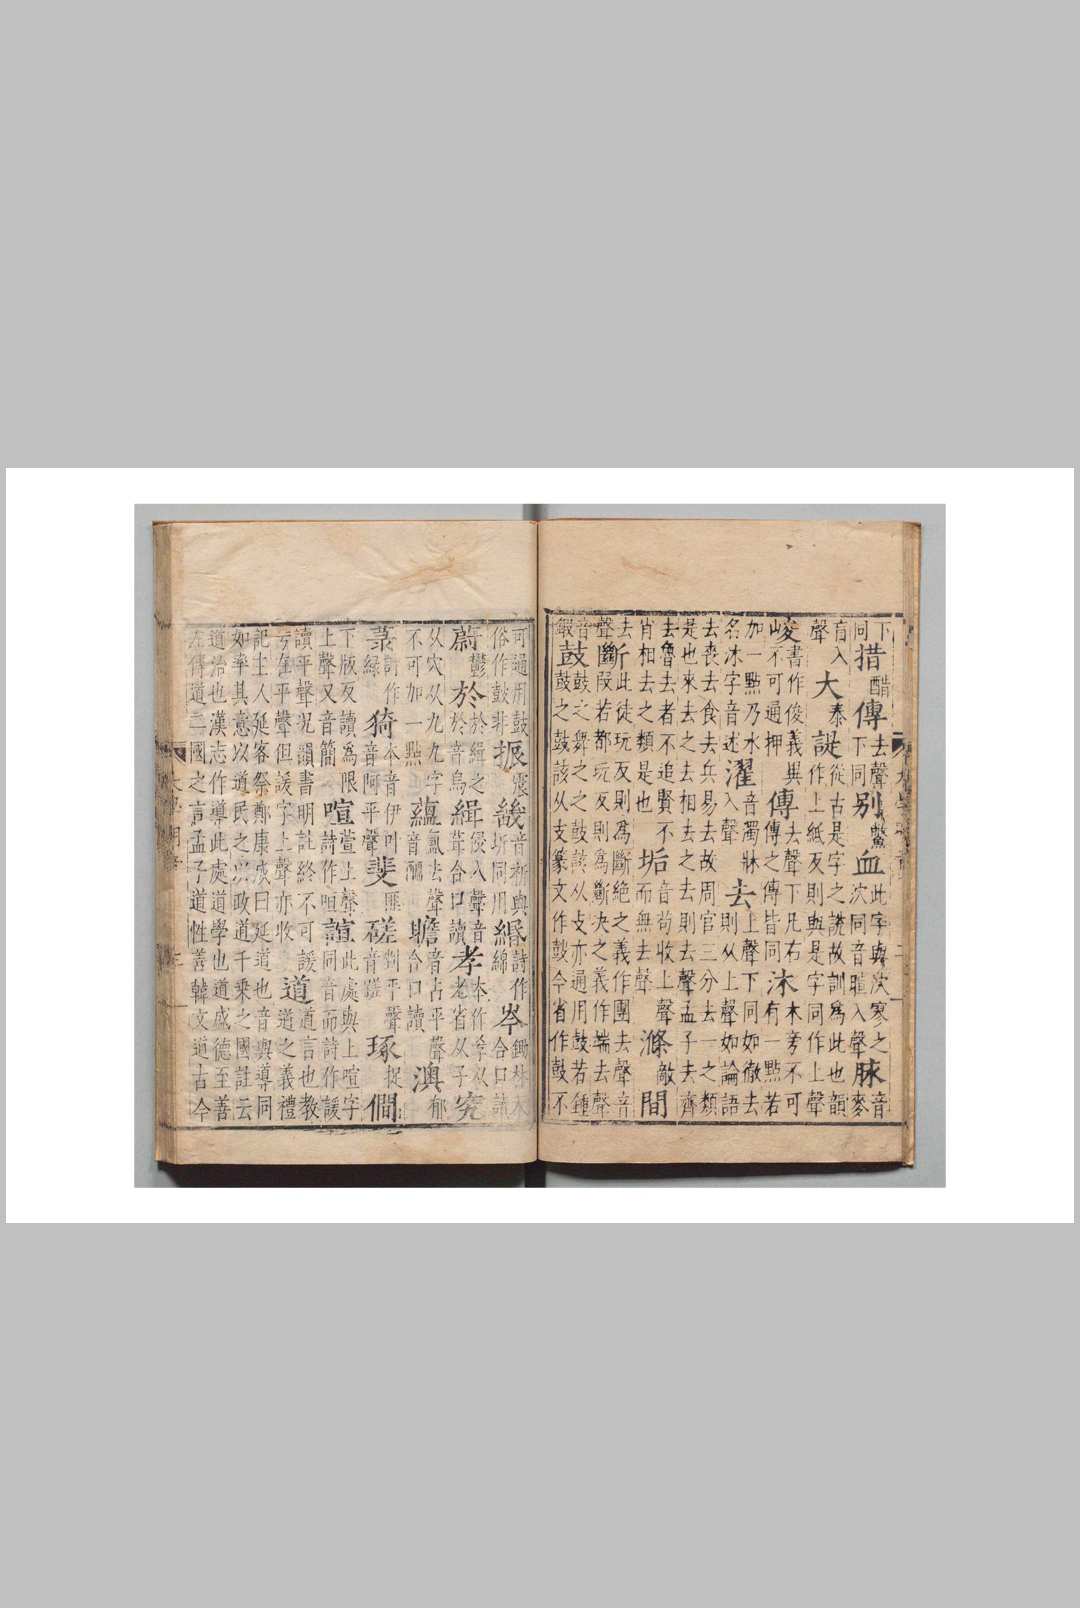 下同措醋傳去聲下同别鱉血此字與次寒之次同音暄入聲脉音麥
音入聲大泰諟從古是字之説故訓爲此也韻作上紙反則與是字同作上聲
峻書作俊義與山不可通押傳去聲下凡右傳之傳皆同沐木旁不可有一點若
加一點乃水名沐字音述濯音濁牀入聲去上聲下同如徹去則从上聲如論語
去喪去食去兵易去故周官三分去一之類是也來去之去相去之去則去聲孟子去齊
去魯去者不追賢不肖相去之類是也垢音苟收上聲而無去聲滌敵間
去聲斷此徒玩反則爲斷絶之義作團去聲音段若都玩反則爲斷决之義作端去聲
音鍛鼓鼓之舞之之鼓該从攴亦通用鼓若鍾鼓之鼓該从支篆文作鼓今省作鼓不
可通用鼓俗作鼓非振震幾音祈與圻同用緡詩作綿岑鋤林木合口讀
蔚鬱於於緝之於音烏緝侵入聲音葺合口讀孝本作孝从老省从子究
从穴从九九字不可加一點蘊氲去聲音醞瞻音占平聲合口讀澳郁
菉詩作緑猗本音伊叶音阿平聲斐匪磋剉平聲音蹉琢捉僩
下版反讀爲限上聲又音簡喧萱上聲詩作咺諠此處與上喧字同音而詩作諼
讀平聲况韻書明註終不可諼在平聲但諼字上聲亦收道道言也教道之義禮
記士人延客祭鄭康成曰延道也音與導同如率其意以道民之以政道千乘之國註云
道治也漢志作導此處道學也道盛德至善左傳道二國之言孟子道性善韓文道古今